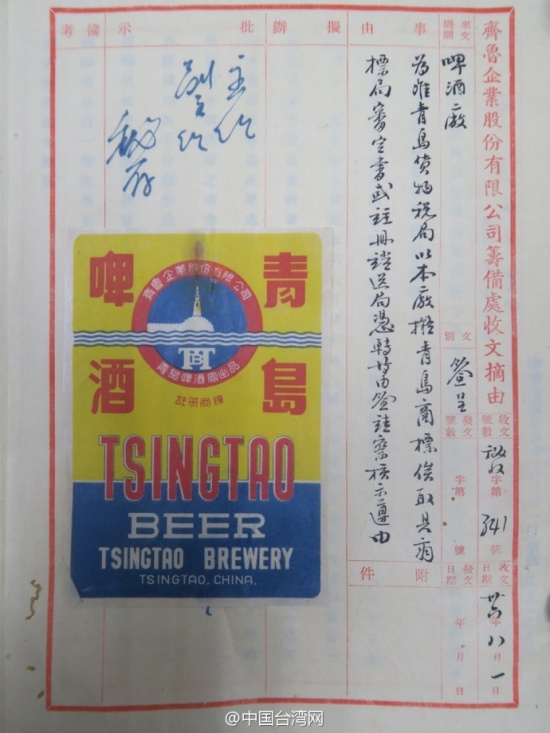 齊魯企業股份有限公司籌備處收文摘由
收文號數 字第 341 號
收文日期 卅六年八月一日
發文號數 字第 號
發文日期 年 月 日
來文機關
啤酒廠
文別
簽呈
事由
為准青島貨物稅局以本廠青島商標俟取具商
標局審定書或註冊證送局憑轉等由簽註察核示遵由
附件
擬辦
批示
備考
青島
啤酒
齊魯企業股份有限公司
TB
青島啤酒廠出品
註册商標
TSINGTAO
BEER
TSINGTAO BREWERY
TSINGTAO, CHINA.
@中国台湾网